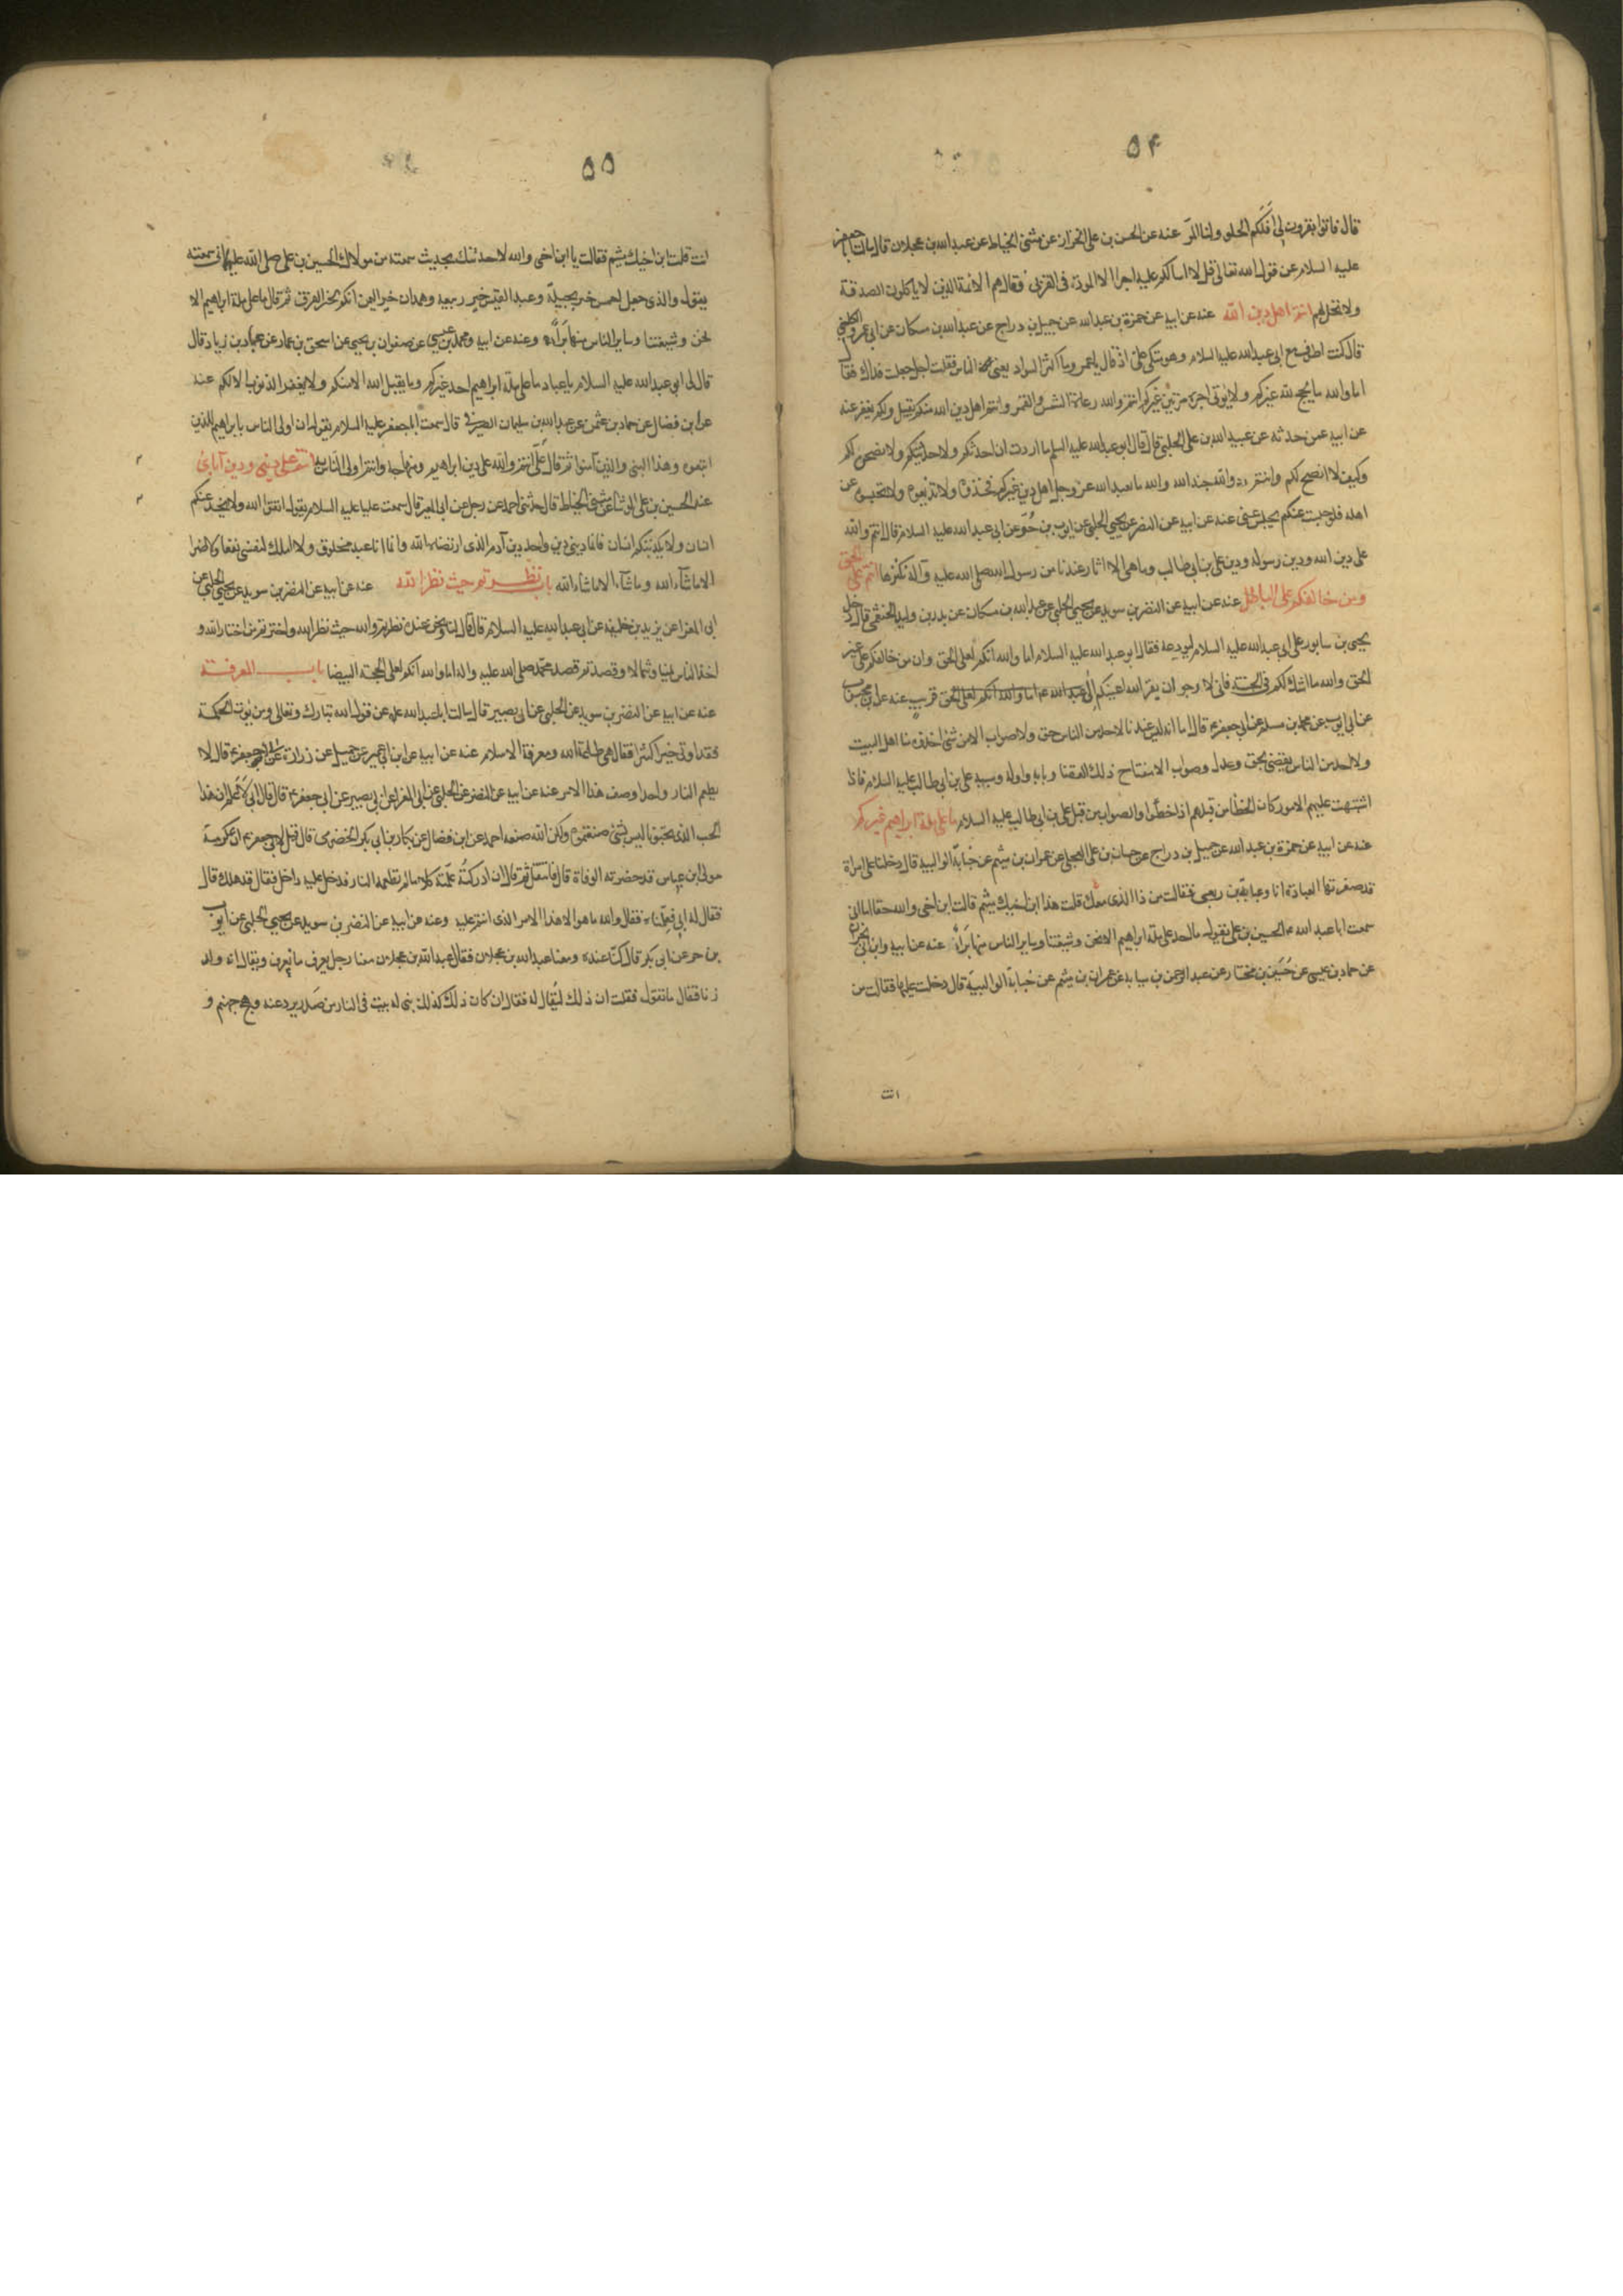 ۵۴
قال فاتوا بقرون الى اقلكم الحلو ولنا المر عنه عن الحسن بن على الخزاز عن مثنى الحناط عن عبدالله بن عجلان قال سالت ابا جعفر
عليه السلام عن قول الله تعالى قل لا اسالكم عليه اجرا الا المودة فى القربى فقال هم الائمة الذين لا ياكلون الصدقة
ولا تحل لهم انتم اهل دين الله عنه عن ابيه عن حمزة بن عبدالله عن جميل بن دراج عن عبدالله بن مسكان عن ابى عمرو الكلبى
قال كنت اطوف مع ابى عبدالله عليه السلام وهو متكى على اذ قال يا عمرو ما اكثر السواد يعنى الناس فقلت اجل جعلت فداك فقال
اما والله ما يحج لله غيركم ولا يؤتى اجره مرتين غيركم انتم والله رعاة الشمس والقمر وانتم اهل دين الله منكم يقبل ولكم يغفر عنه
عن ابيه عمن حدثه عن عبيد الله بن على الحلبى قال قال ابو عبدالله عليه السلم ما اردت ان احدثكم ولاحدثنكم ولانصحن لكم
وكيف لا انصح لكم وانتم والله جند الله والله ما يعبد الله عز وجل اهل دين غيركم فخذوه ولا تذيعوه ولا تحبسوه عن
اهله فلو حبست عنكم يحبس عنى عنه عن ابيه عن النضر عن يحيى الحلبى عن ايوب بن حر عن ابى عبدالله عليه السلام قال انتم والله
على دين الله ودين رسوله ودين على بن ابى طالب وما هى الا اثار عندنا من رسول الله صلى الله عليه وآله نكنزها انتم على الحق
ومن خالفكم على الباطل عنه عن ابيه عن النضر بن سويد عن يحيى الحلبى عن عبدالله بن مسكان عن بدر بن وليد الخثعمى قال دخل
يحيى بن سابور على ابى عبدالله عليه السلام ليودعه فقال ابو عبدالله عليه السلام اما والله انكم لعلى الحق وان من خالفكم على غير
الحق والله ما اشك لكم فى الجنة فانى لارجو ان يقر الله اعينكم الى قريب عنه عن ابن محبوب
عن ابى ايوب عن محمد بن مسلم عن ابى جعفر ع قال اما انه ليس عندنا لاحد من الناس حق ولا صواب الا من شئ اخذوه منا اهل البيت
ولا احد من الناس يقضى بحق وعدل وصواب الا مفتاح ذلك القضا وبابه واوله وسببه على بن ابى طالب عليه السلام فاذا
اشتبهت عليهم الامور كان الخطا من قبلهم اذا اخطئوا والصواب من قبل على بن ابى طالب عليه السلام ما على ملة ابراهيم غيركم
عنه عن ابيه عن حمزة بن عبدالله عن جميل بن دراج عن حسان بن على العجلى عن عمران بن ميثم عن حبابة الوالبية قال دخلنا على امراة
قد صفرتها العبادة انا وعباية بن ربعى فقالت من ذا الذى معك قلت هذا ابن اخيك ميثم قالت ابن اخى والله حقا اما انى
سمعت ابا عبدالله الحسين بن على يقول ما احد على ملة ابراهيم الا نحن وشيعتنا وساير الناس منها براء عنه عن ابيه وابن ابى نجران
عن حماد بن عيسى عن حسين بن مختار عن عبد الرحمن بن سيابه عن عمران بن ميثم عن حبابة الوالبية قال دخلت عليها فقالت من
انت
۵۵
انت قلت ابن اخيك ميثم فقالت يا ابن اخى والله لاحدثنك بحديث سمعته من مولاك الحسين بن على صلى الله عليهما انى سمعته
يقول والذى جعل احمس خير بجيلة وعبد القيس خير ربيعه وهمدان خير اليمن انكم لخير الفرق ثم قال ما على ملة ابراهيم الا
نحن وشيعتنا وساير الناس منها براء وعنه عن ابيه ومحمد بن عيسى عن صفوان بن يحيى عن اسحق بن عمار عن عباد بن زياد قال
قال لى ابو عبدالله عليه السلام يا عباد ما على ملة ابراهيم احد غيركم وما يقبل الله الا منكم ولا يغفر الذنوب الا لكم عنه
عن ابن فضال عن حماد بن عثمن عن عبدالله بن سليمان الصيرفى قال سمعت ابا جعفر عليه السلام يقول ان اولى الناس بابراهيم للذين
اتبعوه وهذا النبى والذين آمنوا ثم قال على انتم والله على دين ابراهيم ومنهاجه وانتم اولى الناس به انتم على دينى ودين آبائى
عنه الحسين بن على الوشاء عن مثنى الحناط قال حدثنى احمد عن رجل عن ابى المغيرة قال سمعت عليا عليه السلام يقول اتقوا الله ولا يخدعنكم
انسان ولا يكذبنكم انسان فانما دينى دين واحد دين آدم الذى ارتضاه الله وانما انا عبد مخلوق ولا املك لنفسى نفعا ولا ضرا
الا ماشآء الله وماشآء الا ماشاءالله باب نظرتم حيث نظر الله عنه عن ابيه عن النضر بن سويد عن يحيى الحلبى عن
ابى المغرا عن يزيد بن خليفه عن ابى عبدالله عليه السلام قال قال لنا ونحن عنده نظرتم والله حيث نظر الله واخترتم من اختار الله و
اخذ الناس يمينا وشمالا وقصدتم قصد محمد صلى الله عليه واله اما والله انكم لعلى المحجة البيضا باب المعرفة
عنه عن ابيه عن النضر بن سويد عن الحلبى عن ابى بصير قال سالت ابا عبدالله ع عن قول الله تبارك وتعالى ومن يؤت الحكمة
فقد اوتى خيرا كثيرا فقال هى طاعة الله ومعرفة الاسلام عنه عن ابيه عن ابن ابى عمير عن جميل عن زرارة عن ابى جعفر ع قال لا
يطعم النار واحدا وصف هذا الامر عنه عن ابيه عن النضر عن الحلبى عن ابى المغرا عن ابى بصير عن ابى جعفر ع قال قال انى لاعلم ان هذا
الحب الذى تحبونا ليس بشئ صنعتموه ولكن الله صنعه احمد عن ابن فضال عن بكار بن ابى بكر الحضرمى قال قيل لابى جعفر ع ان عكرمة
مولى ابن عباس قد حضرته الوفاة قال فانتقل ثم قال ان ادركته علمته كلاما لم تطعمه النار فدخل عليه داخل فقال قد هلك قال
فقال له ابى فعلمناه فقال والله ما هو الا هذا الامر الذى انتم عليه وعنه عن ابيه عن النضر بن سويد عن يحيى الحلبى عن ايوب
بن حر عن ابى بكر قال كنا عنده ومعنا عبدالله بن عجلان فقال عبدالله بن عجلان معنا رجل يعرف ما نعرف ويقال انه ولد
زنا فقال ما تقول فقلت ان ذلك ليقال له فقال ان كان ذلك كذلك بنى له بيت فى النار من صدر يرد عنه وهج جهنم و